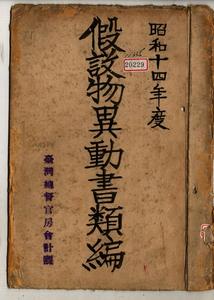 昭和十四年度
20229
假設物異動書類編
臺灣總督官房會計課